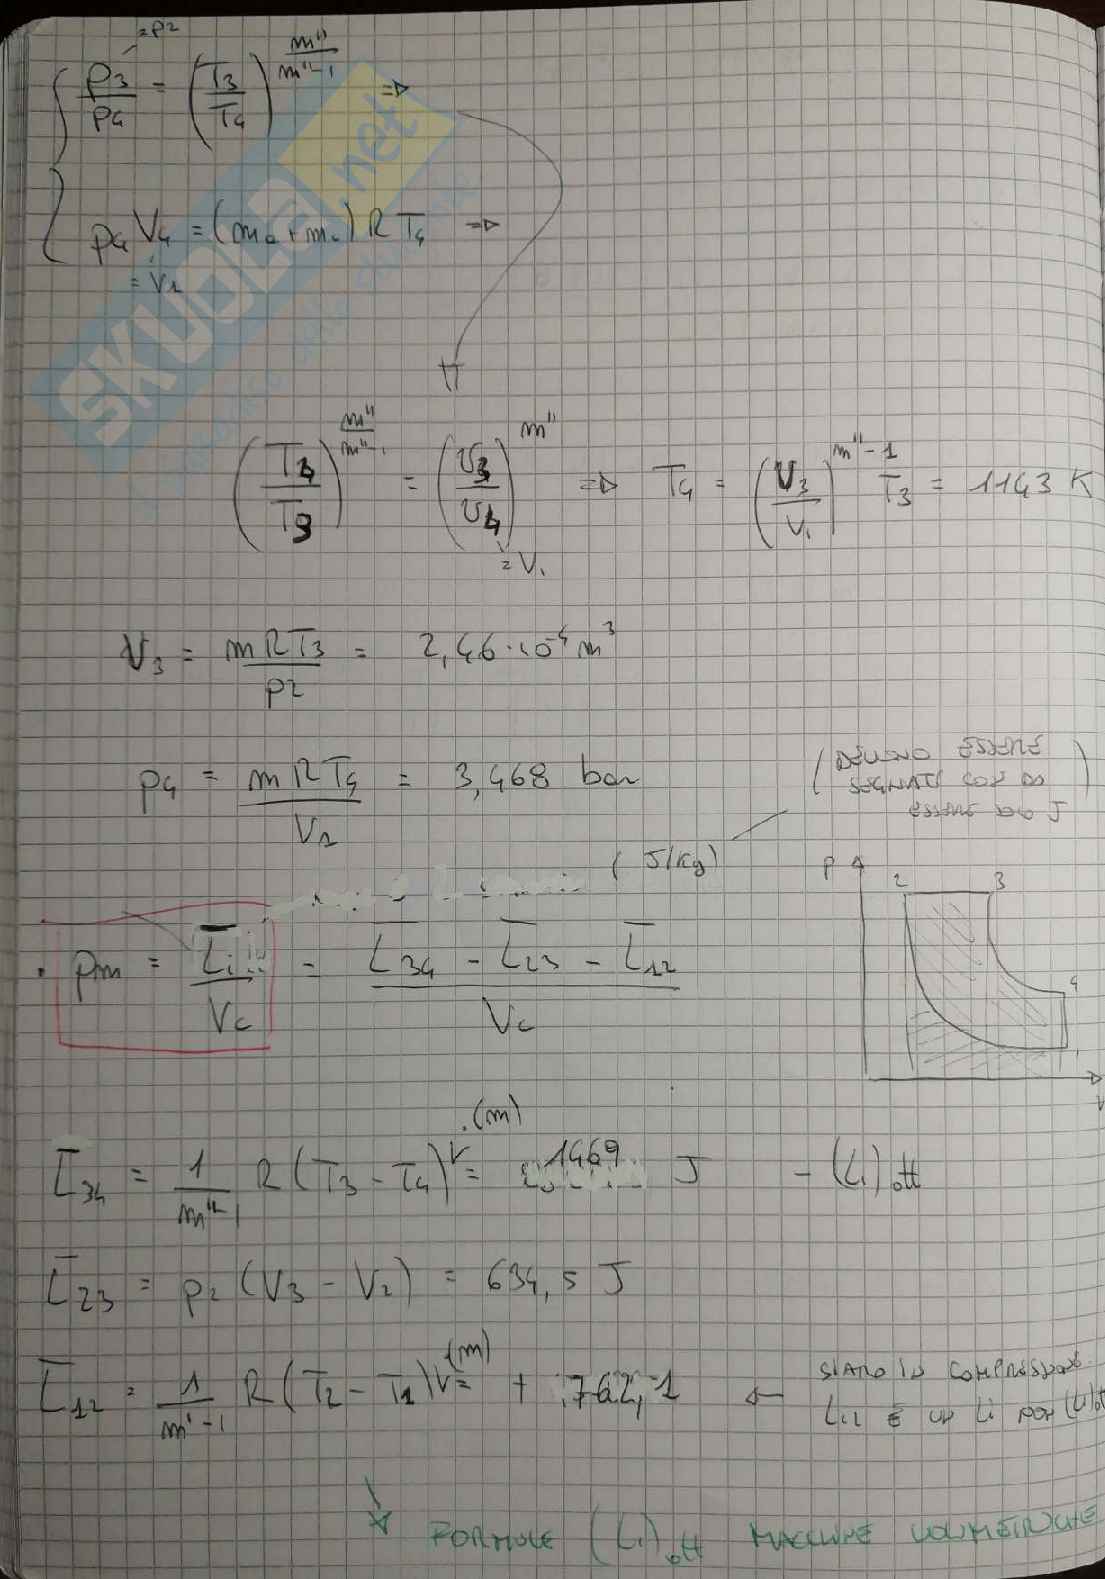 = p2
p3/p4 = (T3/T4)^(m''/(m''-1)) ⇒
p4 V4 = (ma + mc) R T4 ⇒
= V1
SKUOLA.net
(T4/T3)^(m''/(m''-1)) = (v3/v4)^m'' ⇒ T4 = (V3/V1)^(m''-1) T3 = 1143 K
= V1
V3 = mRT3/p2 = 2,46·10^-4 m^3
p4 = mRT4/V1 = 3,468 bar
(DEVONO ESSERE
SEGNATI
ESSENDO J)
(J/kg)
pm = Li/Vc = (L34 - L23 - L12)/Vc
p 2 3 4 1 V
(m)
L34 = 1/(m''-1) R (T3 - T4) = 1469 J - (Li)ott
L23 = p2 (V3 - V2) = 634,5 J
(m)
L12 = 1/(m'-1) R (T2 - T1) = + 762,1 ← SIAMO IN COMPRESSIONE
L12 È UN Li NON (Li)ott
FORMULE (Li)ott MACCHINE VOLUMETRICHE